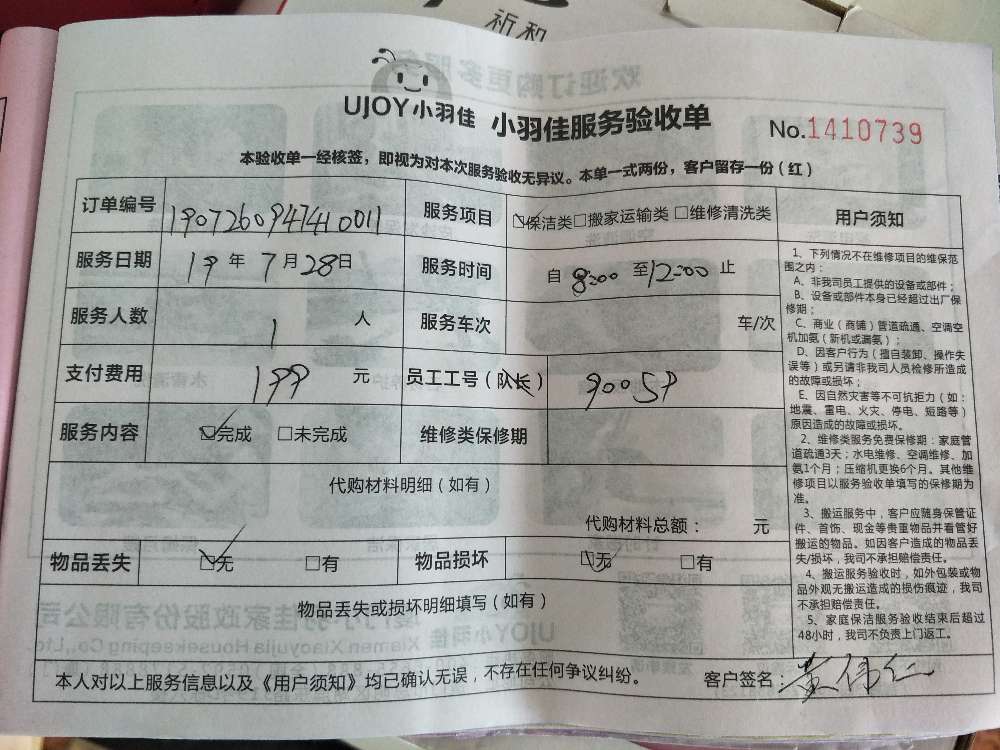 祈和
UJOY小羽佳 小羽佳服务验收单 No.1410739
本验收单一经核签，即视为对本次服务验收无异议。本单一式两份，客户留存一份（红）
订单编号 1907260947410011 服务项目 保洁类□搬家运输类□维修清洗类
服务日期 19年7月28日 服务时间 自8:00至12:00止
服务人数 1人 服务车次 车/次
支付费用 199元 员工工号（队长） 90059
服务内容 ☑完成 □未完成 维修类保修期
代购材料明细（如有）
代购材料总额： 元
物品丢失 ☑无 □有 物品损坏 ☑无 □有
物品丢失或损坏明细填写（如有）
本人对以上服务信息以及《用户须知》均已确认无误，不存在任何争议纠纷。 客户签名：黄伟仁
用户须知
1、下列情况不在维修项目的维保范
围之内：
A、非我司员工提供的设备或部件；
B、设备或部件本身已经超过出厂保
修期；
C、商业（商铺）管道疏通、空调空
机加氨（新机或漏氨）；
D、因客户行为（擅自装卸、操作失
误等）或另请非我司人员检修所造成
的故障或损坏；
E、因自然灾害等不可抗拒力（如：
地震、雷电、火灾、停电、短路等）
原因造成的故障或损坏。
2、维修类服务免费保修期：家庭管
道疏通3天；水电维修、空调维修、加
氨1个月；压缩机更换6个月。其他维
修项目以服务验收单填写的保修期为
准。
3、搬运服务中，客户应随身保管证
件、首饰、现金等贵重物品并看管好
搬运的物品。如因客户造成的物品丢
失/损坏，我司不承担赔偿责任。
4、搬运服务验收时，如外包装或物
品外观无搬运造成的损伤痕迹，我司
不承担赔偿责任。
5、家庭保洁服务验收结束后超过
48小时，我司不负责上门返工。